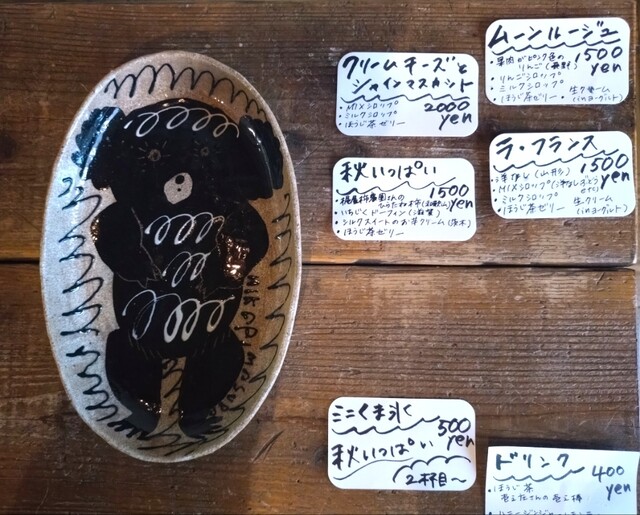 クリームチーズと
シャインマスカット
・MIXシロップ
・ミルクシロップ
・ほうじ茶ゼリー
2000
yen
ムーンルージュ
・果肉がピンク色の
りんご
・りんごシロップ
・ミルクシロップ
・ほうじ茶ゼリー
1500
yen
生クリーム
秋いっぱい
1500
yen
・いちじくドーフィン(滋賀)
・シルクスイートのお芋クリーム(茨木)
・ほうじ茶ゼリー
ラ・フランス
・洋なし(山形)
1500
yen
・ミルクシロップ
・ほうじ茶ゼリー
生クリーム
ミニくま氷
500
yen
秋いっぱい
2杯目〜
ドリンク
400
yen
・ほうじ茶